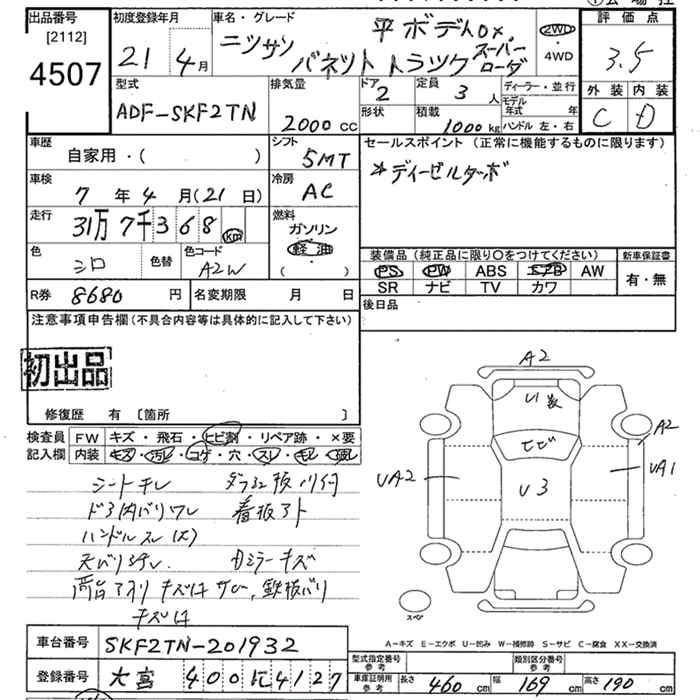 出品番号
[2112]
4507
初度登録年月
21 4月
車名・グレード
ニッサン 平ボディ DX
バネットトラック スーパーローダ
2WD
・
4WD
評価点
3.5
外装 内装
C D
型式
ADF-SKF2TN
排気量
2000 cc
ドア
2
定員
3 人
形状
積載
1000 kg
ディーラー・並行
モデル年式 年
ハンドル 左・右
車歴
自家用・( )
シフト
5MT
セールスポイント (正常に機能するものに限ります)
*ディーゼルターボ
車検
7 年 4 月(21日)
冷房
AC
走行
31万7千368 km
燃料
ガソリン
軽油
( ・ )
色
シロ
色替
色コード
A2W
装備品 (純正品に限り○をつけてください)
PS PW ABS エアB AW
SR ナビ TV カワ
新車保証書
有・無
R券 8680 円
名変期限 月 日
後日品
注意事項申告欄(不具合内容等は具体的に記入して下さい)
初出品
修復歴 有 〔箇所 〕
検査員
記入欄
FW キズ・飛石・ヒビ割・リペア跡・×要
内装 キズ・汚レ・コゲ・穴・スレ・キレ・破レ
シートキレ
ドア内バリワレ
看板アト
ハンドルスレ(大)
天バリヨゴレ
ミラーキズ
キズ
A2
ヒビ
U3
UA2
A2
UA1
スペア
A-キズ E-エクボ U-凹み W-補修跡 S-サビ C-腐食 XX-交換済
車台番号 SKF2TN-201932
登録番号 大宮 400 に 4127
型式指定番号
参考
類別区分番号
参考
車庫証明用
参考
長さ 460 cm 幅 169 cm 高さ 190 cm